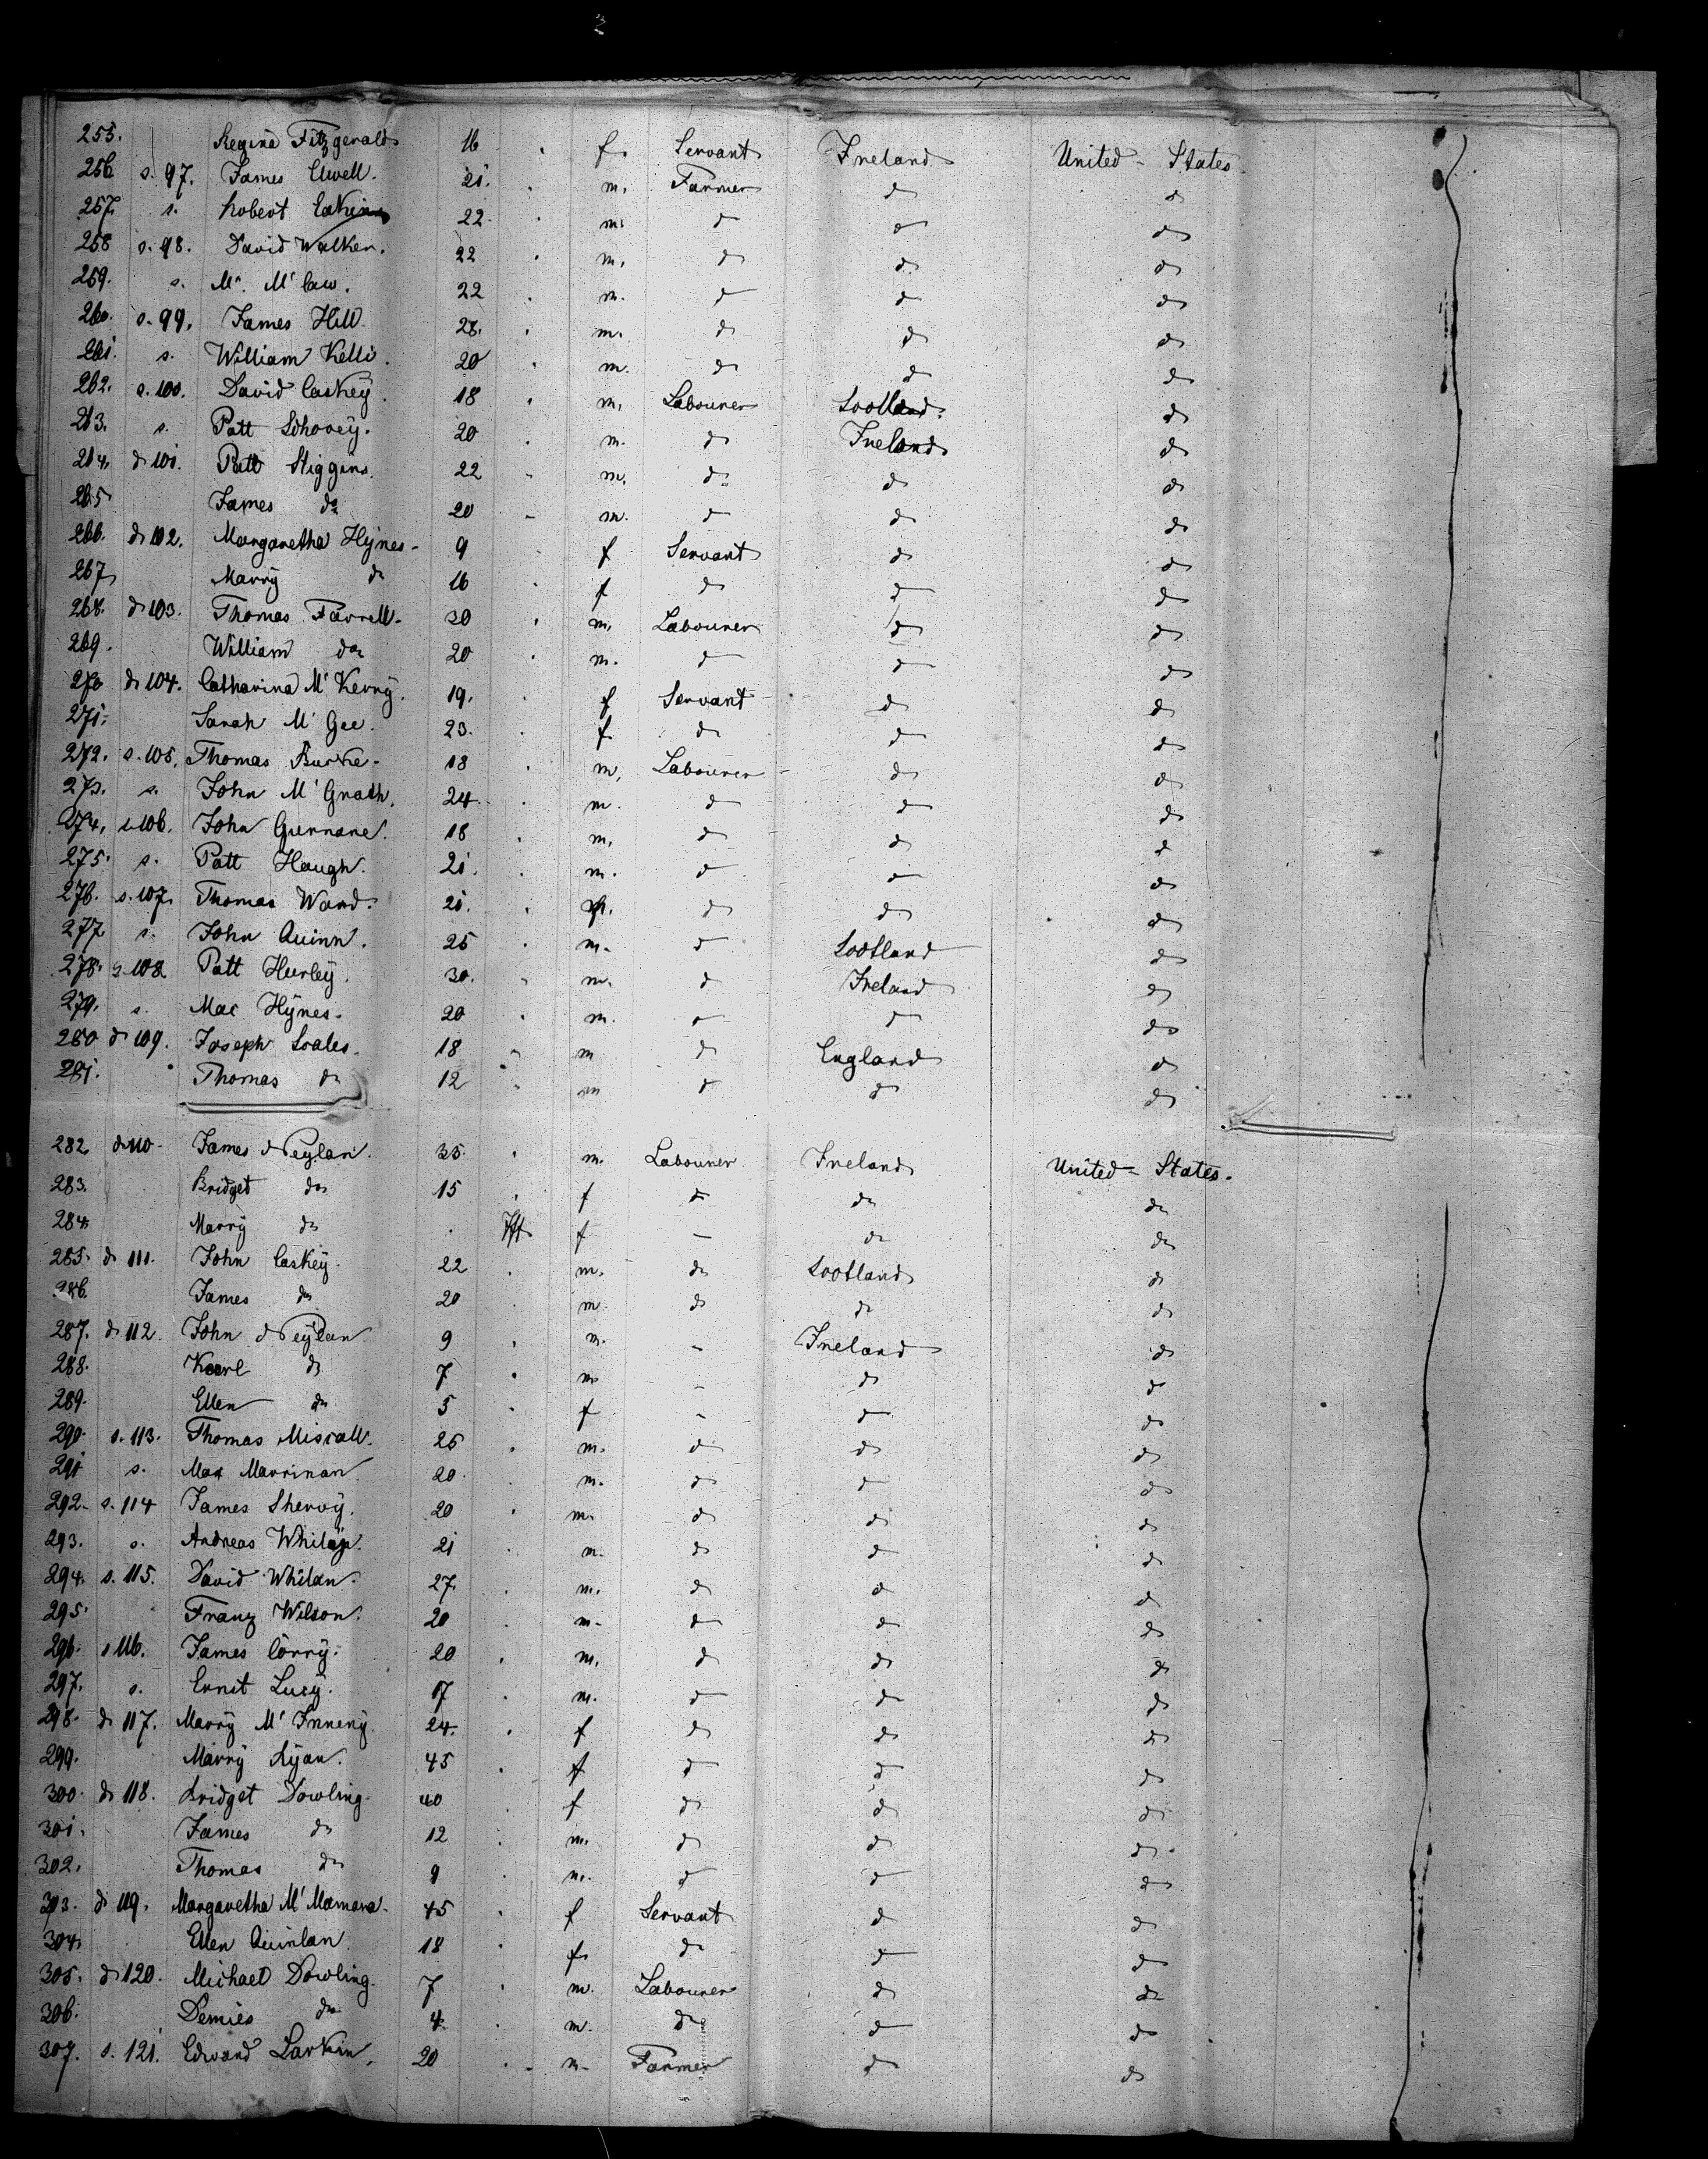 255. Regina Fitzgerald 16 f. Servant Ireland United-States.
256 s. 97. James Elwell. 21. m. Farmer do do
257. s. Robert 22. m. do do do
258 s. 98. David Walker. 22 m. do do do
259. s. Mc. M'Caw. 22 m. do do do
260. s. 99. James Hill. 28. m. do do do
261. s. William Kelli. 20 m. do do do
262. s. 100. David Caskey. 18 m. Labourer Scotland. do
263. s. Patt 20 m. do Ireland do
264. do 101. Patt Higgins. 22 m. do do do
265 James do 20 m. do do do
266. do 102. Margaretha Hÿnes. 9 f Servant do do
267. Marrÿ do 16 f do do do
268. do 103. Thomas Farrell. 30 m. Labourer do do
269. William do 20 m. do do do
270 do 104. Catharina M' Kerrÿ. 19. f Servant do do
271. Sarah M' Gee. 23. f. do do do
272. s. 105. Thomas Burke. 18 m. Labourer do do
273. s. John M' Grath. 24. m. do do do
274. s. 106. John Gurnane. 18 m. do do do
275. s. Patt Haugh. 21. m. do do do
276. s. 107. Thomas Ward. 21. m. do do do
277 s. John Quinn. 25 m. do Scotland do
278. s. 108. Patt Hurleÿ. 30. m. do Ireland do
279. s. Mac Hÿnes. 20 m. do do do
280 do 109. Joseph Scales. 18 m do England do
281. Thomas do 12 m do do do
282 do 110. James Neylan. 35. m. Labourer Ireland United-States.
283. Bridget do 15 f do do do
284. Marrÿ do f — do do
285. do 111. John Caskeÿ. 22 m. do Scotland do
286. James do 20 m. do do do
287. do 112. John Neÿlan 9 m. - Ireland do
288. Karl do 7 m. - do do
289. Ellen do 5 f - do do
290. s. 113. Thomas Miscall. 25 m. do do do
291 s. Max Marrinan. 20. m. do do do
292. s. 114 James Shervÿ. 20 m. do do do
293. s. Andreas 21 m. do do do
294. s. 115. David Whilan. 27. m. do do do
295. Franz Wilson. 20 m. do do do
296. s 116. James Corrÿ. 20 m. do do do
297. s. Ernst Lucÿ. 17 m. do do do
298. do 117. Marrÿ M' Innenÿ. 24. f do do do
299. Marrÿ Rÿan. 45 f do do do
300. do 118. Bridget Dowling. 40 f do do do
301. James do 12 m. do do do
302. Thomas do 9 m. do do do
303. do 119. Margaretha M' Mamara. 45 f Servant do do
304. Ellen Quinlan. 18 f. do do do
305. do 120. Michael Dowling. 7 m. Labourer do do
306. Demies do 4. m. do do do
307. s. 121. Edward Larkin. 20 m. Farmer do do